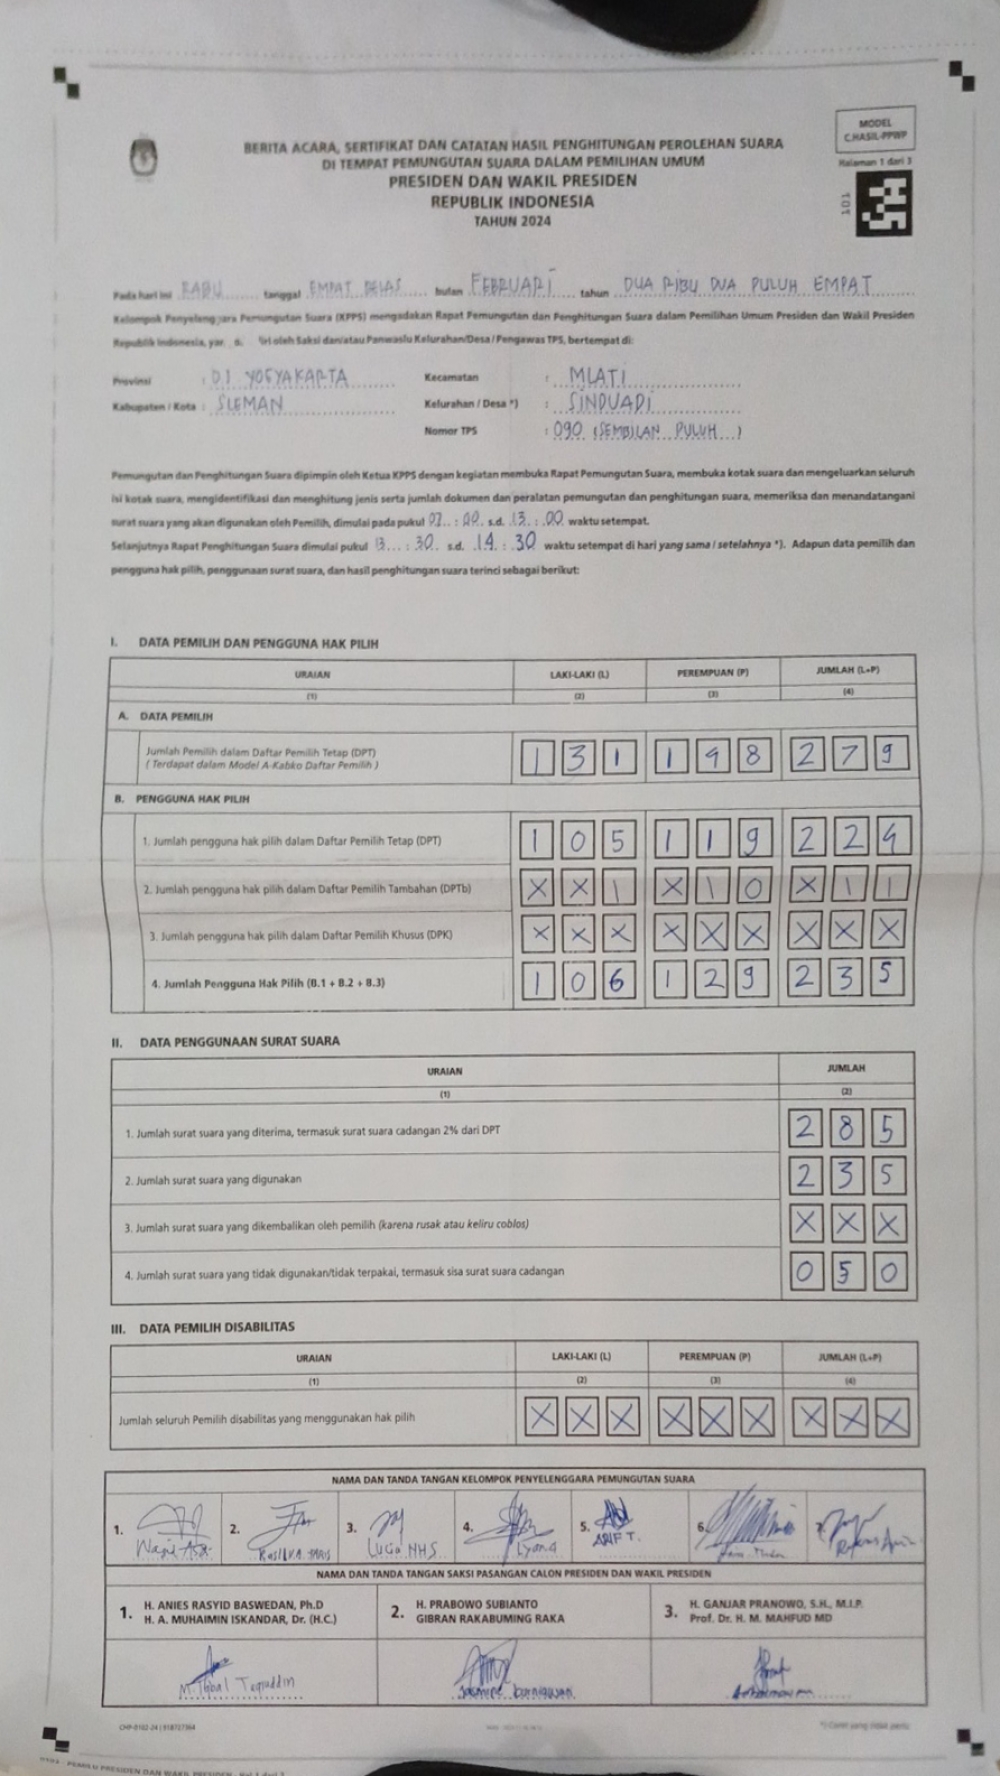 MODEL
C.HASIL-PPWP
Halaman 1 dari 3
101
BERITA ACARA, SERTIFIKAT DAN CATATAN HASIL PENGHITUNGAN PEROLEHAN SUARA
DI TEMPAT PEMUNGUTAN SUARA DALAM PEMILIHAN UMUM
PRESIDEN DAN WAKIL PRESIDEN
REPUBLIK INDONESIA
TAHUN 2024
Pada hari ini RABU tanggal EMPAT BELAS bulan FEBRUARI tahun DUA RIBU DUA PULUH EMPAT
Kelompok Penyelenggara Pemungutan Suara (KPPS) mengadakan Rapat Pemungutan dan Penghitungan Suara dalam Pemilihan Umum Presiden dan Wakil Presiden
Republik Indonesia, oleh Saksi dan/atau Panwaslu Kelurahan/Desa/Pengawas TPS, bertempat di:
Provinsi : D.I YOGYAKARTA Kecamatan : MLATI
Kabupaten / Kota : SLEMAN Kelurahan / Desa *) : SINDUADI
Nomor TPS : 090 (SEMBILAN PULUH )
Pemungutan dan Penghitungan Suara dipimpin oleh Ketua KPPS dengan kegiatan membuka Rapat Pemungutan Suara, membuka kotak suara dan mengeluarkan seluruh
isi kotak suara, mengidentifikasi dan menghitung jenis serta jumlah dokumen dan peralatan pemungutan dan penghitungan suara, memeriksa dan menandatangani
surat suara yang akan digunakan oleh Pemilih, dimulai pada pukul 07 : 00 s.d. 13 : 00 waktu setempat.
Selanjutnya Rapat Penghitungan Suara dimulai pukul 13 : 30 s.d. 14 : 30 waktu setempat di hari yang sama / setelahnya *). Adapun data pemilih dan
pengguna hak pilih, penggunaan surat suara, dan hasil penghitungan suara terinci sebagai berikut:
I. DATA PEMILIH DAN PENGGUNA HAK PILIH
URAIAN LAKI-LAKI (L) PEREMPUAN (P) JUMLAH (L+P)
(1) (2) (3) (4)
A. DATA PEMILIH
Jumlah Pemilih dalam Daftar Pemilih Tetap (DPT)
( Terdapat dalam Model A-Kabko Daftar Pemilih ) 1 3 1 1 4 8 2 7 9
B. PENGGUNA HAK PILIH
1. Jumlah pengguna hak pilih dalam Daftar Pemilih Tetap (DPT) 1 0 5 1 1 9 2 2 4
2. Jumlah pengguna hak pilih dalam Daftar Pemilih Tambahan (DPTb) X X 1 X 1 0 X 1 1
3. Jumlah pengguna hak pilih dalam Daftar Pemilih Khusus (DPK) X X X X X X X X X
4. Jumlah Pengguna Hak Pilih (B.1 + B.2 + B.3) 1 0 6 1 2 9 2 3 5
II. DATA PENGGUNAAN SURAT SUARA
URAIAN JUMLAH
(1) (2)
1. Jumlah surat suara yang diterima, termasuk surat suara cadangan 2% dari DPT 2 8 5
2. Jumlah surat suara yang digunakan 2 3 5
3. Jumlah surat suara yang dikembalikan oleh pemilih (karena rusak atau keliru coblos) X X X
4. Jumlah surat suara yang tidak digunakan/tidak terpakai, termasuk sisa surat suara cadangan 0 5 0
III. DATA PEMILIH DISABILITAS
URAIAN LAKI-LAKI (L) PEREMPUAN (P) JUMLAH (L+P)
(1) (2) (3) (4)
Jumlah seluruh Pemilih disabilitas yang menggunakan hak pilih X X X X X X X X X
NAMA DAN TANDA TANGAN KELOMPOK PENYELENGGARA PEMUNGUTAN SUARA
1. 2. 3. 4. 5. 6. 7.
LUGA NHS Lyana ARIF T.
NAMA DAN TANDA TANGAN SAKSI PASANGAN CALON PRESIDEN DAN WAKIL PRESIDEN
1. H. ANIES RASYID BASWEDAN, Ph.D
H. A. MUHAIMIN ISKANDAR, Dr. (H.C.)
2. H. PRABOWO SUBIANTO
GIBRAN RAKABUMING RAKA
3. H. GANJAR PRANOWO, S.H., M.I.P.
Prof. Dr. H. M. MAHFUD MD
M. Iqbal Taqiuddin Jasmine Kurniawan